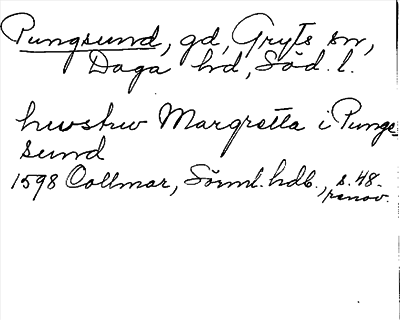 Pungsund, gd, Gryts sn,
Daga hd, Söd. l.
hwstrw Margretta i Pungs-
sund
1598 Collmar, Sörml. hdb., s. 48.
renov.